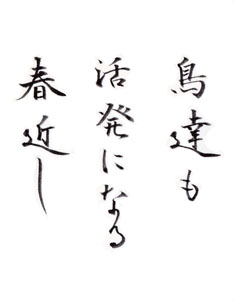 鳥達も
活発になる
春近し